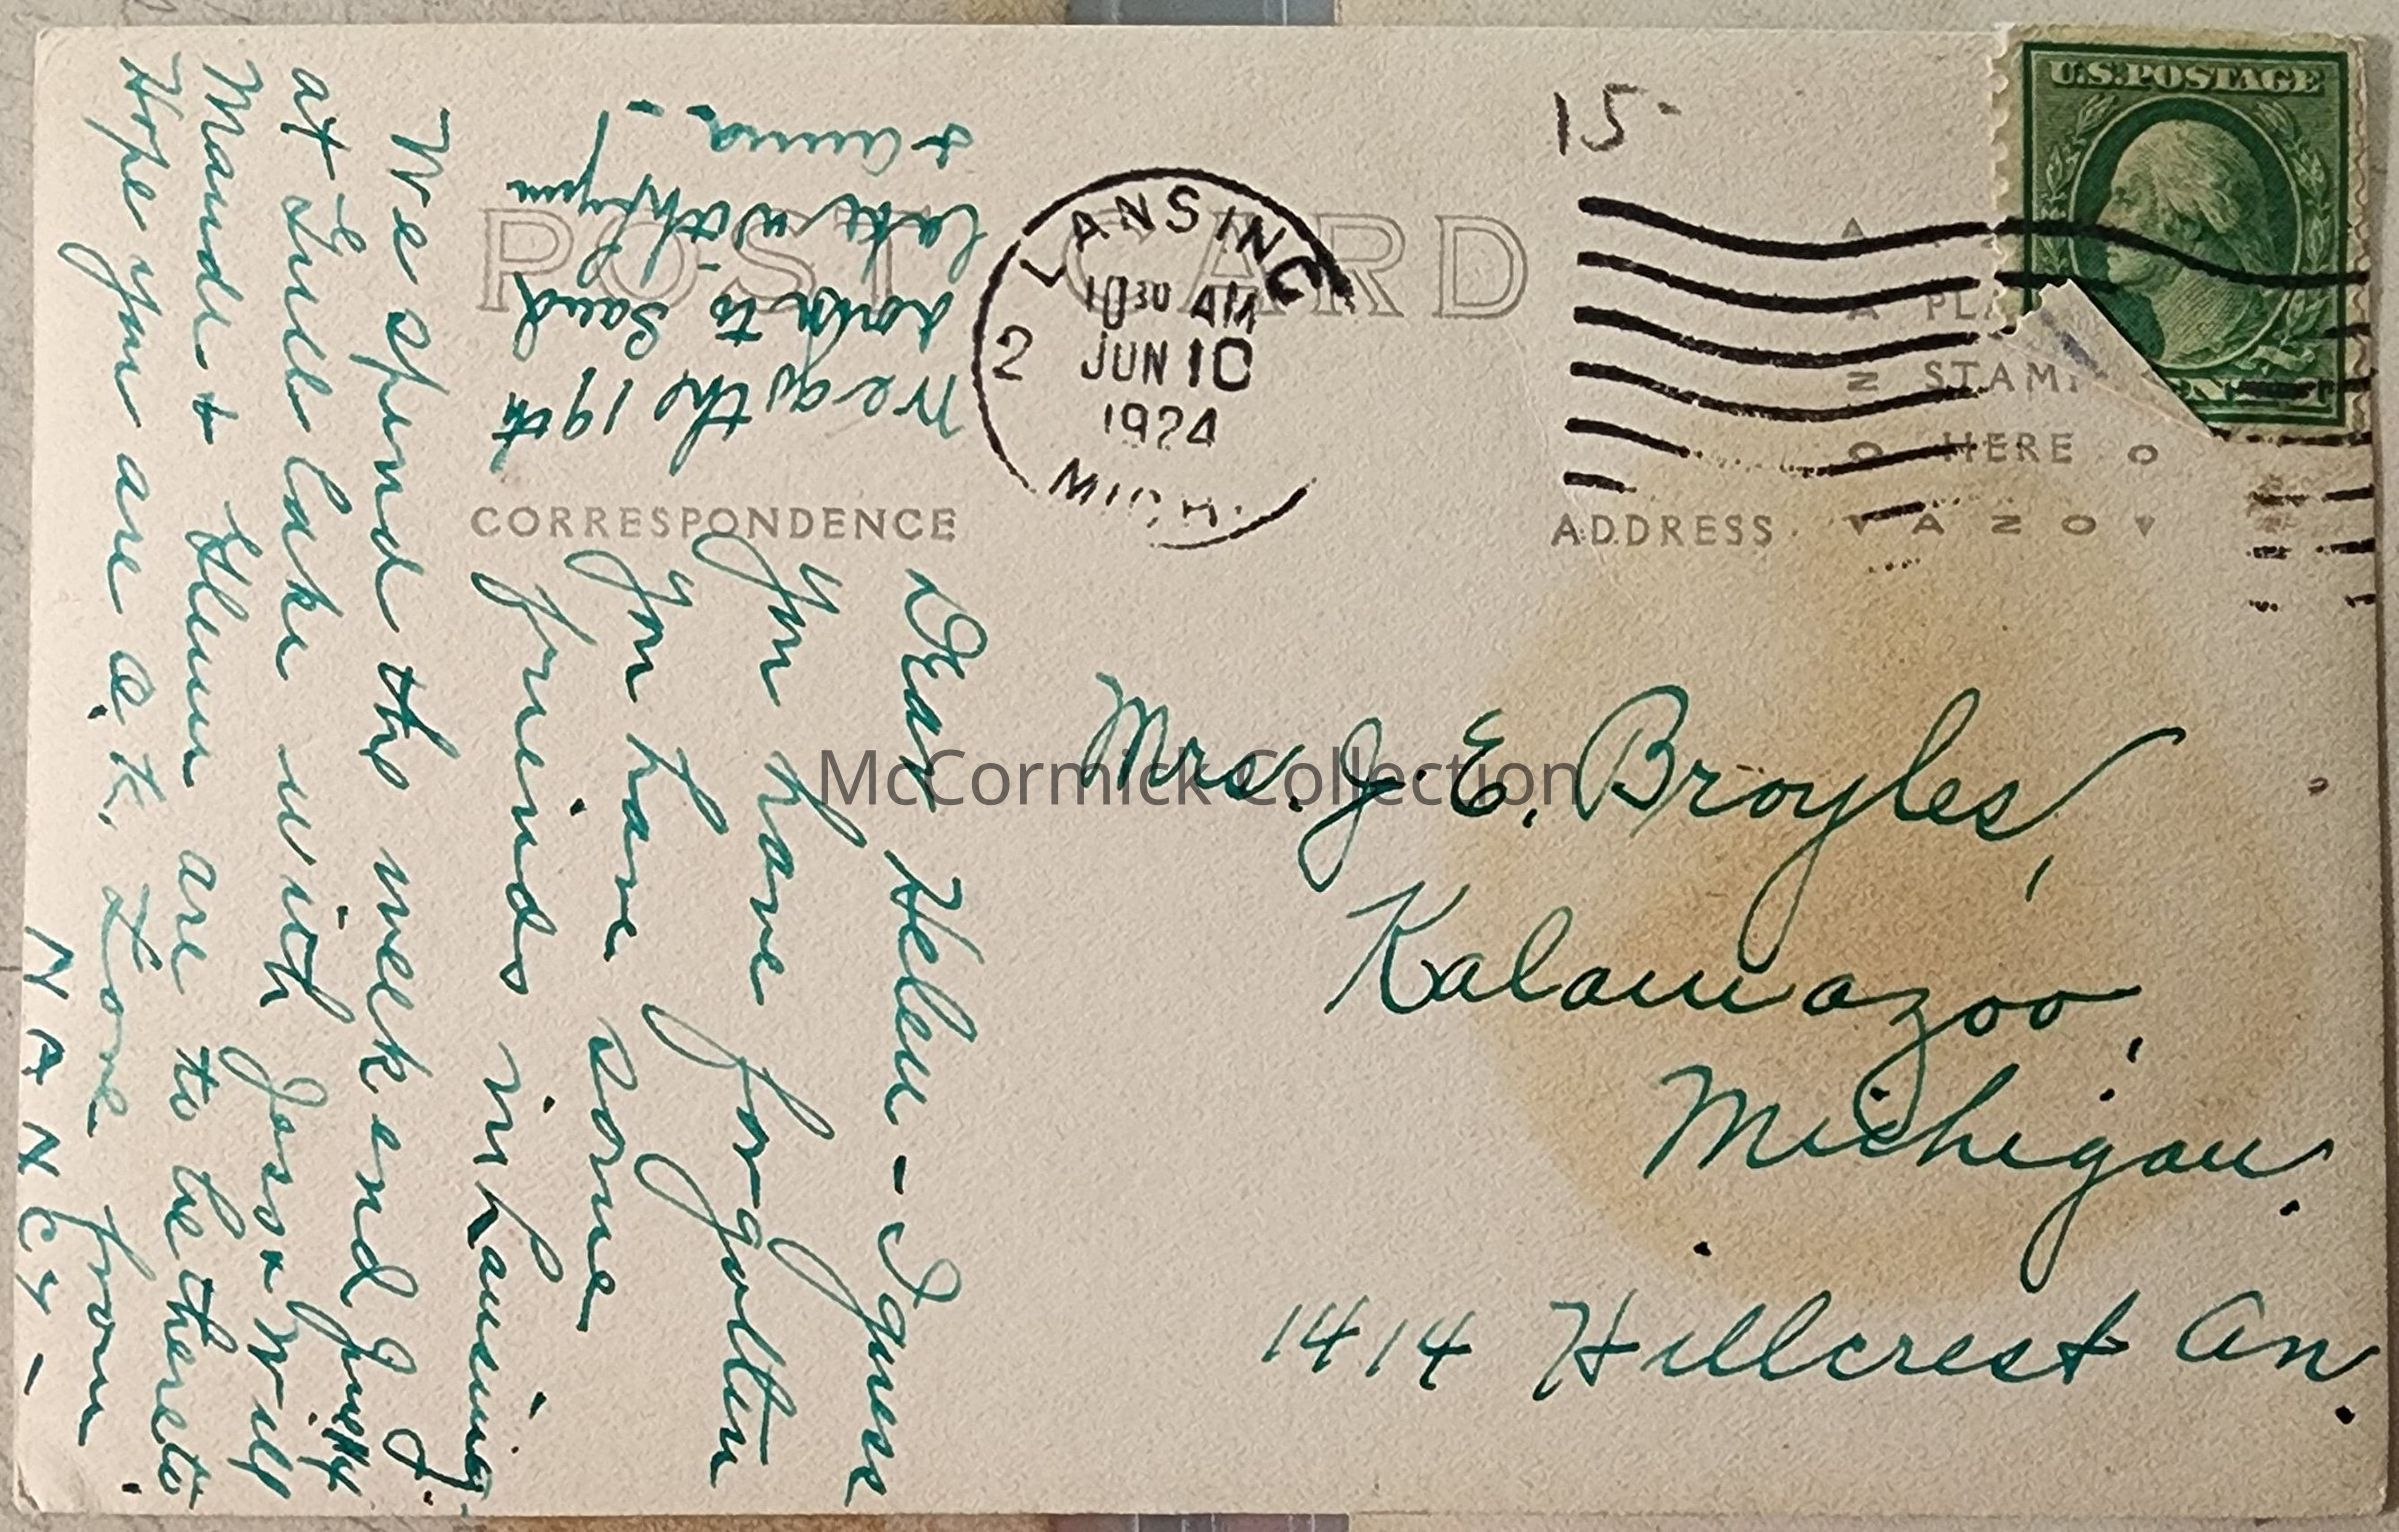 U.S. POSTAGE
15-
POST CARD
LANSING
2
10 30 AM
JUN 10
1924
MICH.
A
PLA
STAM
HERE
A Z O
CORRESPONDENCE
ADDRESS
Dear Helen - I guess
you have forgotten
you have some
friends in Lansing.
We spend the week end
at Gull Lake with
Maude & Glenn are to be there
Hope you are O.K. Love from
NANCY -
We go the 19th
down to Sand
Lake
& Anna.
Mrs. J. E. Broyles,
Kalamazoo,
Michigan.
1414 Hillcrest Av.
McCormick Collection